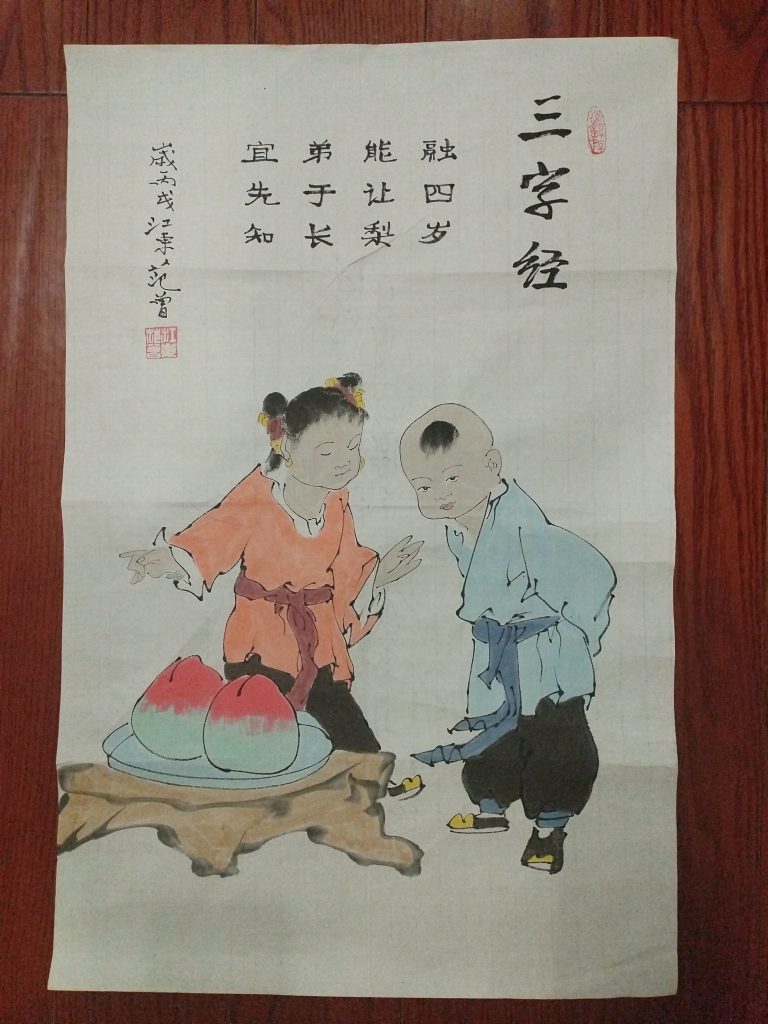 三字经
融四岁
能让梨
弟于长
宜先知
歲丙戌江東范曾